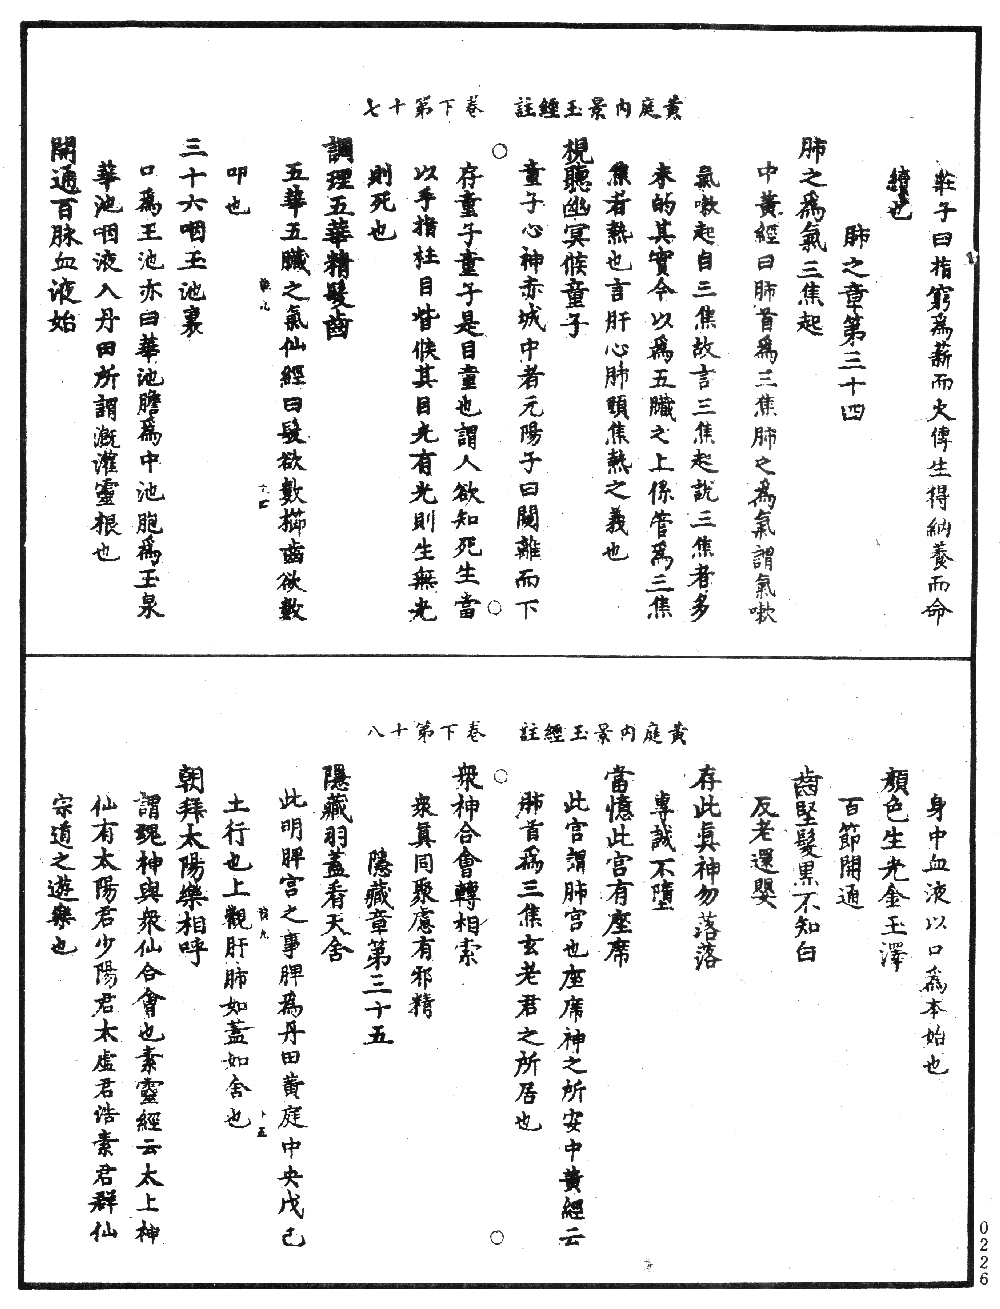 黄庭内景玉經註　卷下第十七
莊子曰指窮為薪而火傳生得納養而命
續也
肺之章第三十四
肺之為氣三焦起
中黃經曰肺首為三焦肺之為氣謂氣嗽
氣嗽起自三焦故言三焦起說三焦者多
未的其實今以為五臟之上係管為三焦
焦者熱也言肝心肺頭焦熱之義也
視聽幽冥候童子
童子心神赤城中者元陽子曰闕離而下
存童子童子是目童也謂人欲知死生當
以手指柱目眥候其目光有光則生無光
則死也
調理五華精髮齒
五華五臟之氣仙經曰髮欲數櫛齒欲數
叩也
三十六咽玉池裏
口為玉池亦曰華池膽為中池胞為玉泉
華池咽液入丹田所謂溉灌靈根也
開通百脉血液始
黄庭内景玉經註　卷下第十八
身中血液以口為本始也
顏色生光金玉澤
百節開通
齒堅髮黑不知白
反老還嬰
存此真神勿落落
專誠不墮
當憶此宮有座席
此宮謂肺宮也座席神之所安中黃經云
肺首為三焦玄老君之所居也
衆神合會轉相索
衆真同聚慮有邪精
隱藏章第三十五
隱藏羽蓋看天舍
此明脾宮之事脾為丹田黃庭中央戊己
土行也上觀肝肺如蓋如舍也
朝拜太陽樂相呼
謂魂神與衆仙合會也素靈經云太上神
仙有太陽君少陽君太虛君浩素君群仙
宗道之遊樂也
0226